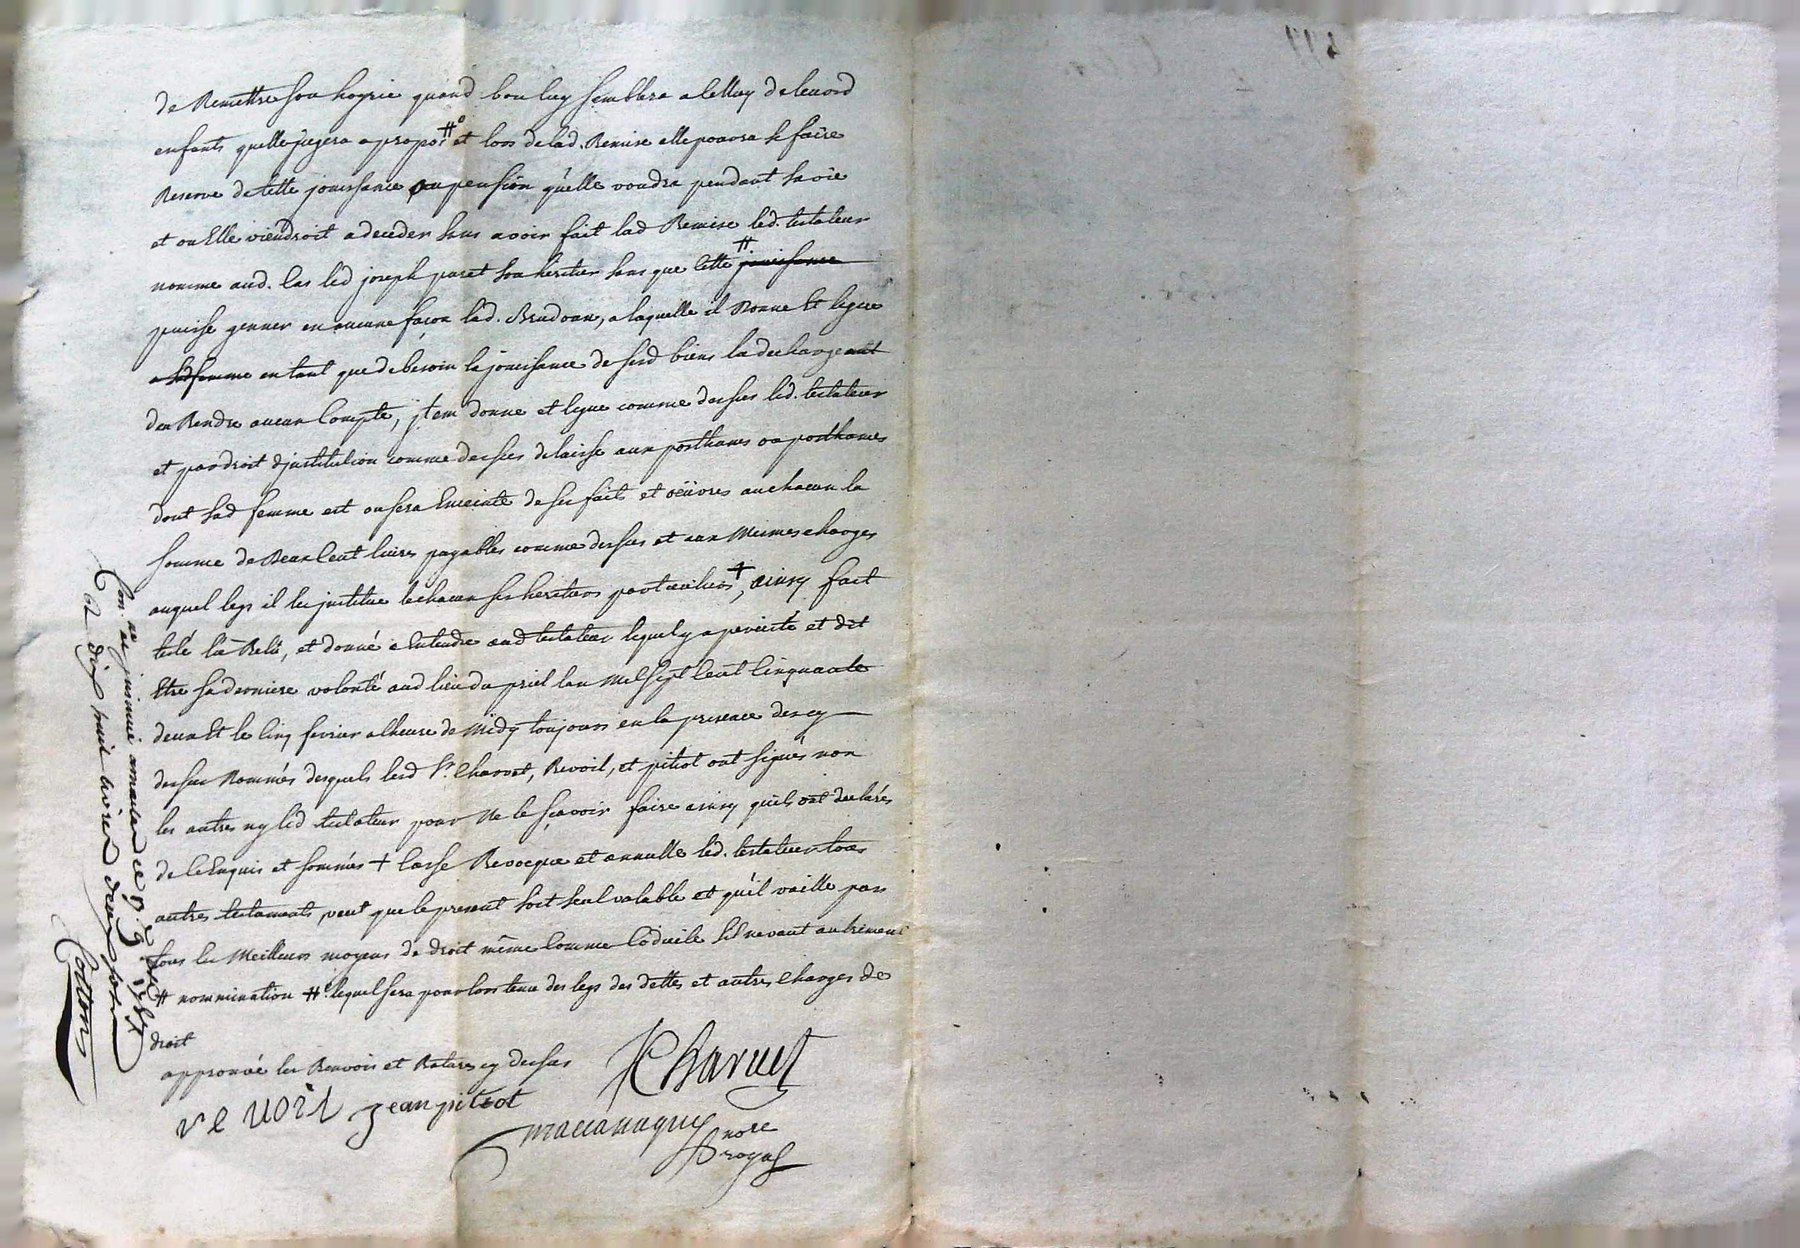 de Remettre son hoyrie quand bon luy semblera a celluy de leurd
enfants quelle jugera a propos #° et lors de lad. Remise elle pourra se faire
Reserve de telle jouissance ou pension qu'elle voudra pendant sa vie
et ou Elle viendroit a deceder sans avoir fait lad Remise led. testateur
nomme aud. Cas led joseph paret son heritier sans que cette # jouissance
puisse genner en aucune façon lad. Brudoan, a laquelle il Donne Et legue
a sad femme en tant que de besoin la jouissance de sesd biens la dechargeant
den Rendre aucun Compte, jtem donne et legue comme dessus led. testateur
et par droit djnstitution comme dessus delaisse aux posthumes ou posthumes
dont sad femme est ou sera Enceinte de ses faits et oeüvres au chacun la
somme de Deux Cent livres payables comme dessus et aux Mesmes charges
auquel legs il les jnstitue lechacun ses heritiers particuliers +, ainsy fait
testé lû Relû, et donné a Entendre aud testateur lequel y a persisté et dit
Etre sa derniere volonté aud lieu du priel lan Mil sept Cent Cinquante
deux Et le Cinq fevrier a lheure de Midy toujours en la presence des cy
dessus Nommés desquels lesd Sr. Charvet, Revoil, et pitiot ont signés non
les autres ny led testateur pour Ne le sçavoir faire ainsy quils ont declarés
de ce Enquis et sommés + Casse Revocque et annulle led. testateur tous
autres testaments, veut que le present soit seul valable et qu'il vaille par
tous les Meilleurs moyens de droit même Comme Codicile s'il ne vaut autrement
# nommination #° lequel sera pour lors tenu des legs des dettes et autres Charges de
droit
approuvé les Renvois et Ratures cy dessus
JCharvet
re voil jean pitiot
nore
royal
Con.lé et jnsinué
a dix huit livres deux sols
Cottons